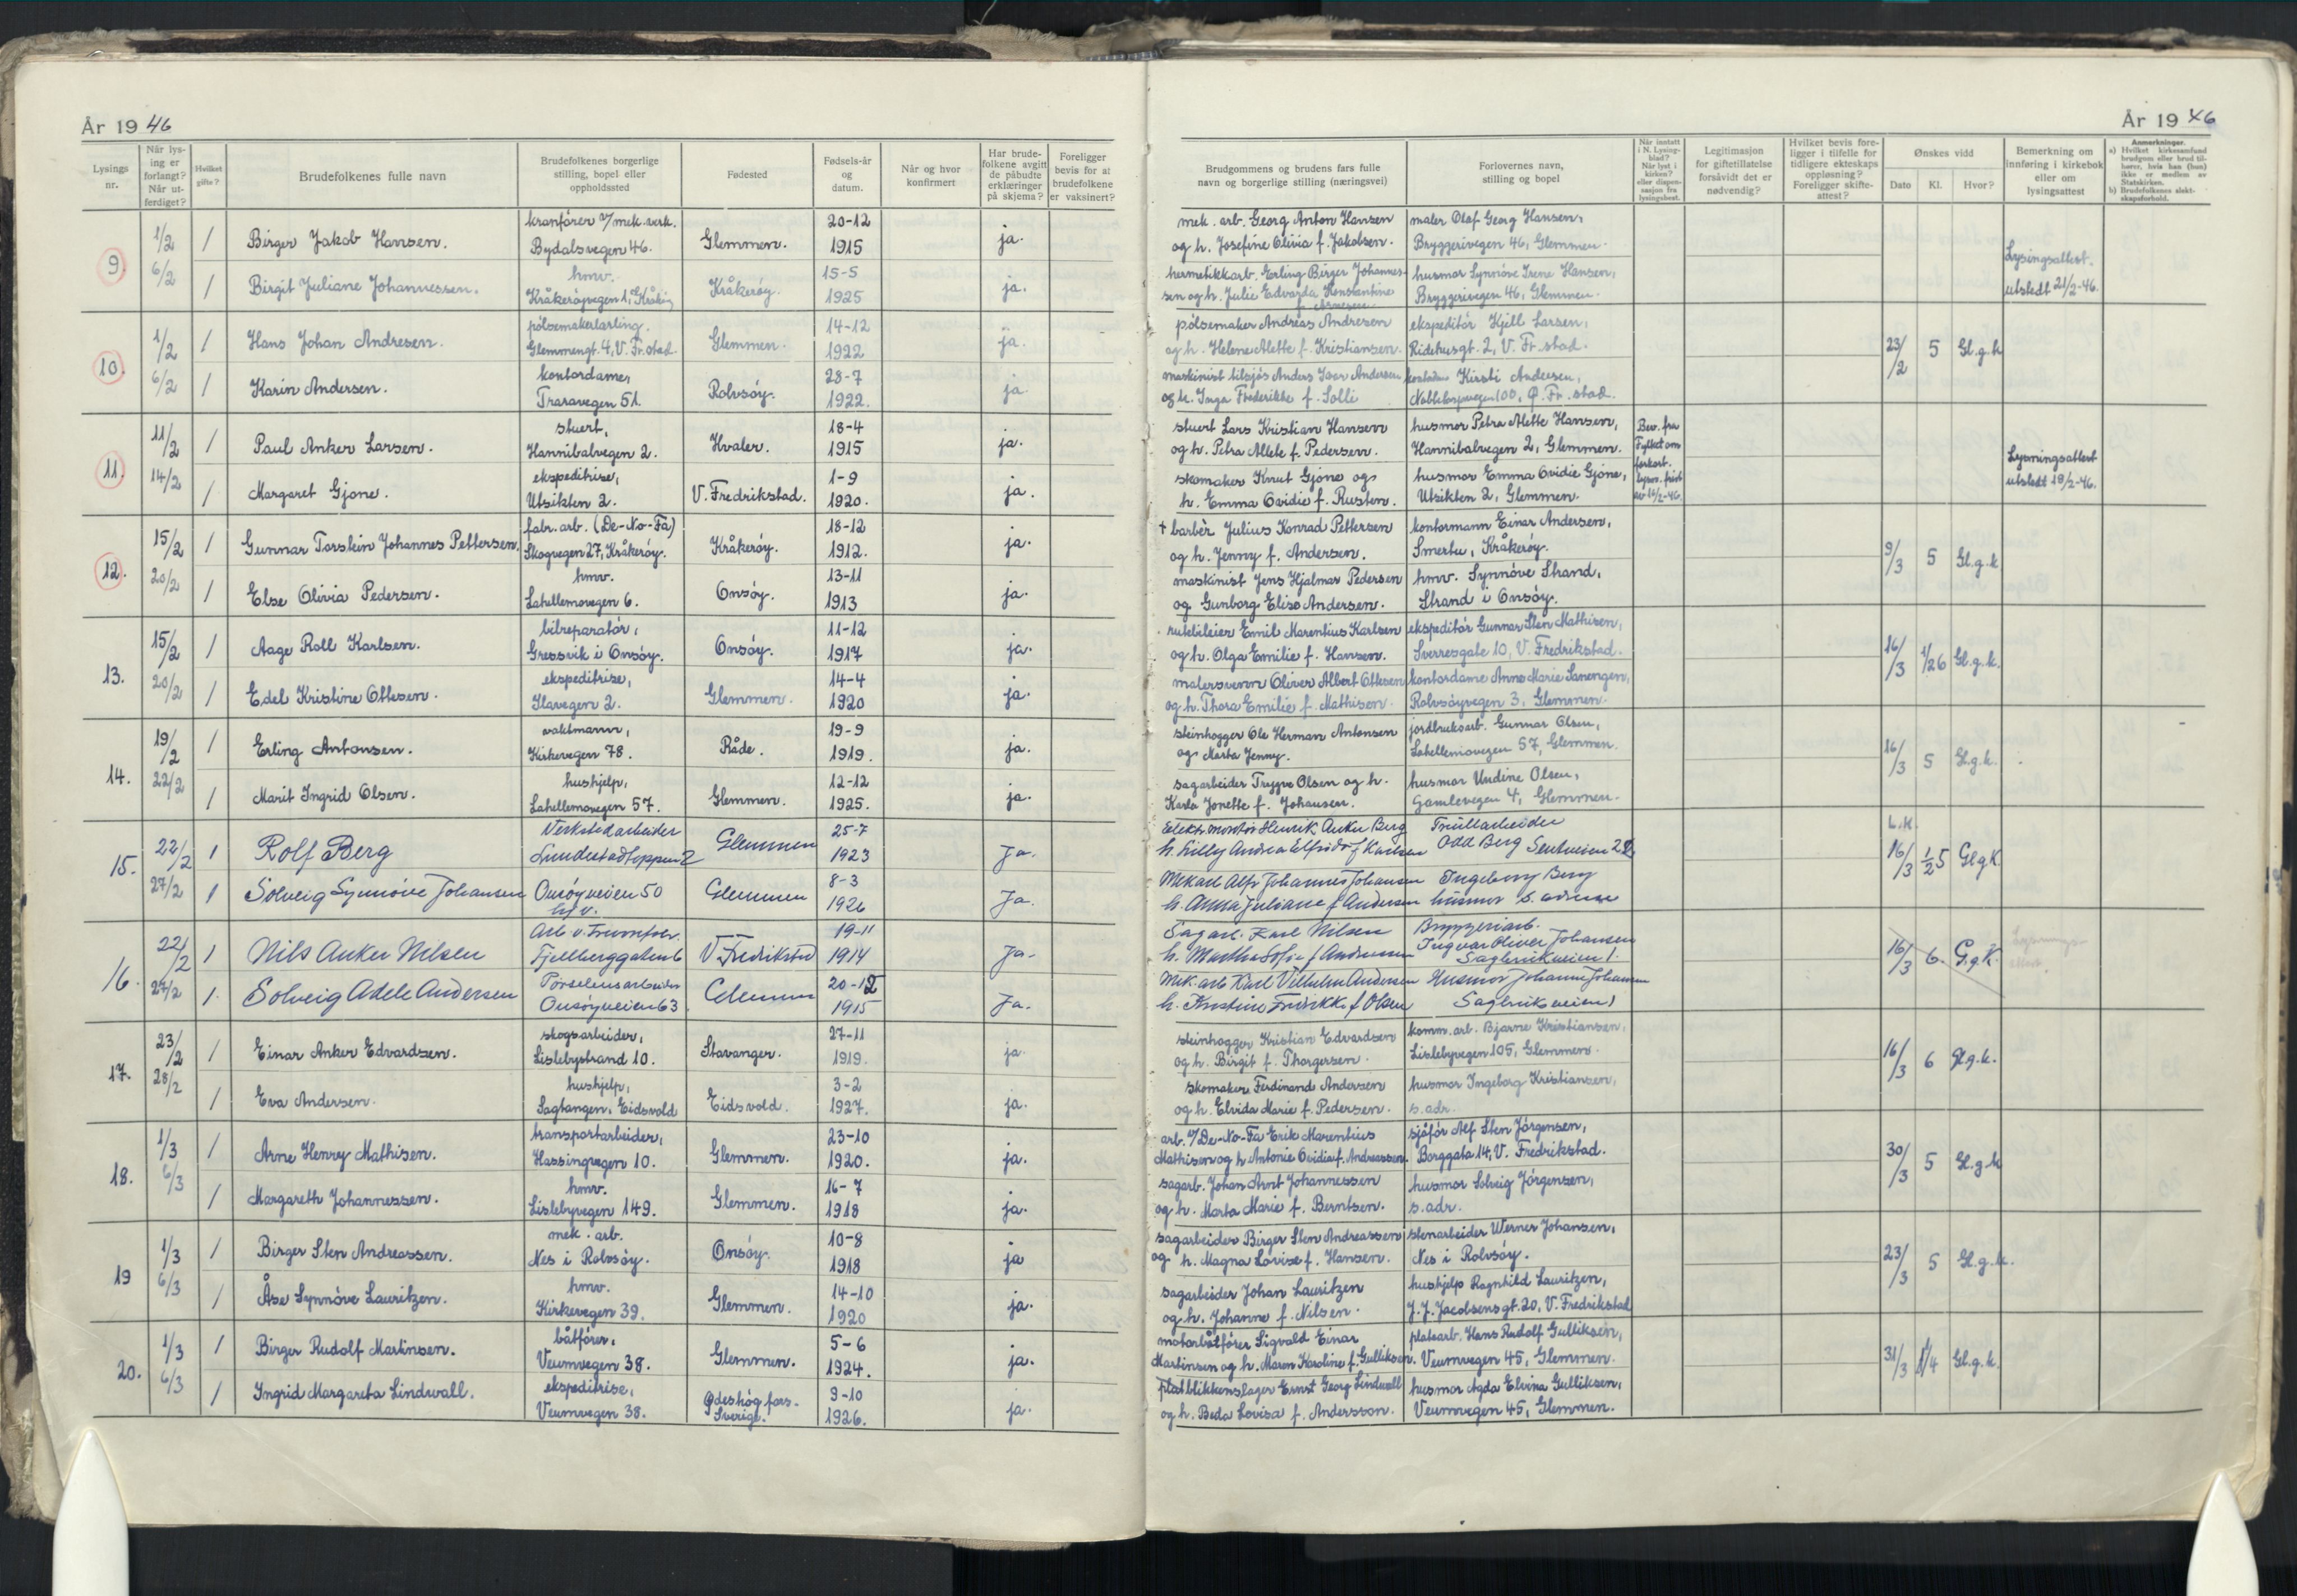 År 1946
År 19 46
Lysings nr.
Når lysing er forlangt? Når utferdiget?
Hvilket gifte?
Brudefolkenes fulle navn
Brudefolkenes borgerlige stilling, bopel eller oppholdssted
Fødested
Fødsels-år og datum.
Når og hvor konfirmert
Har brudefolkene avgitt de påbudte erklæringer på skjema?
Foreligger bevis for at brudefolkene er vaksinert?
Brudgommens og brudens fars fulle navn og borgerlige stilling (næringsvei)
Forlovernes navn, stilling og bopel
Når innsatt i N. Lysingblad? Når lyst i kirken? eller dispensasjon fra lysingsbest.
Legitimasjon for giftetillatelse forsåvidt det er nødvendig?
Hvilket bevis foreligger i tilfelle for tidligere ekteskaps oppløsning? Foreligger skifteattest?
Ønskes vidd
Dato
Kl.
Hvor?
Bemerkning om innføring i kirkebok eller om lysingsattest
Anmerkninger.
a) Hvilket kirkesamfund brudgom eller brud tilhører, hvis han (hun) ikke er medlem av Statskirken.
b) Brudefolkenes slektskapsforhold.
9. 1/2 6/2
1 Birger Jakob Hansen. kranfører v/mek. verk. Bydalsvegen 46. Glemmen. 20-12 1915 ja.
mek. arb. Georg Anton Hansen og h. Josefine Olivia f. Jakobsen. maler Olaf Georg Hansen, Bryggerivegen 46, Glemmen.
1 Birgit Juliane Johannessen. hmv. Kråkerøyvegen 1, Kråkerøy Kråkerøy. 15-5 1925 ja.
hermetikkarb. Erling Birger Johannessen og h. Julie Edvarda Konstantine husmor Synnöve Irene Hansen, Bryggerivegen 46, Glemmen.
Lysingsattest. utstedt 21/2-46.
10. 1/2 6/2
1 Hans Johan Andresen. pölsemakerlærling. Glemmengt. 4, V. Fr.stad. Glemmen. 14-12 1922 ja.
pölsemaker Andreas Andresen og h. Helene Alette f. Kristiansen. ekspeditör Kjell Larsen, Ridehusgt. 2, V. Fr.stad.
1 Karin Andersen. kontordame, Traravegen 51. Rolvsöy. 28-7 1922. ja
maskinist tilsjös Anders Ivar Andersen og h. Inga Frederikke f. Solli Kirsti Andersen, 100, Ø. Fr.stad.
23/2 5 Gl.g.k
11. 11/2 14/2
1 Paul Anker Larsen. stuert, Hannibalvegen 2. Hvaler. 18-4 1915 ja.
stuert Lars Kristian Hansen og h. Petra Alette f. Pedersen. husmor Petra Alette Hansen, Hannibalvegen 2, Glemmen.
Bev. fra Fylket om forkort. lysn. frist av 16/2-46.
1 Margaret Gjone. ekspeditrise, Utsikten 2. V. Fredrikstad. 1-9 1920. ja.
skomaker Knut Gjone og h. Emma Ovidie f. Rusten. husmor Emma Ovidie Gjone, Utsikten 2, Glemmen.
Lysningsattest utstedt 19/2-46.
12. 15/2 20/2
1 Gunnar Torstein Johannes Pettersen. fabr. arb. (De-No-Fa) Skogvegen 27, Kråkeröy. Kråkeröy. 18-12 1912. ja.
+ barbér Julius Konrad Pettersen og h. Jenny f. Andersen. kontormann Einar Andersen, Smertu, Kråkeröy.
1 Else Olivia Pedersen. hmv. Lahellemovegen 6. Onsöy. 13-11 1913 ja.
maskinist Jens Hjalmar Pedersen og Gunborg Elise Andersen. hmv. Synnöve Strand, Strand i Onsöy.
9/3 5 Gl.g.k
13. 15/2 20/2
1 Aage Roll Karlsen. bilreparatör, Gressvik i Onsöy. Onsöy. 11-12 1917 ja.
rutebileier Emil Marentius Karlsen og h. Olga Emilie f. Hansen. ekspeditör Gunnar Sten Mathisen, Sverresgate 10, V. Fredrikstad.
1 Edel Kristine Ottesen. ekspeditrise, Ilavegen 2. Glemmen. 14-4 1920 ja.
malersvenn Oliver Albert Ottesen og h. Thora Emilie f. Mathisen. kontordame Anne Marie Sanengen, Rolvsöyvegen 3, Glemmen.
16/3 1/2 6 Gl.g.k.
14. 19/2 22/2
1 Erling Antonsen. vaktmann, Kirkevegen 78. Råde. 19-9 1919. ja.
steinhogger Ole Herman Antonsen og Marta Jenny. jordbruksarb. Gunnar Olsen, Lahellemovegen 57, Glemmen.
1 Marit Ingrid Olsen. hushjelp, Lahellemovegen 57. Glemmen. 12-12 1925. ja.
sagarbeider Trygve Olsen og h. Karla Jonette f. Johansen. husmor Undine Olsen, Gamlevegen 4, Glemmen.
16/3 5 Gl.g.k.
15. 22/2 27/2
1 Rolf Berg Verkstedarbeider Lundestadtoppen 2 Glemmen 25-7 1923 Ja.
Elektr. montör Henrik Anker Berg h. Lilly Andrea Elfrida f Karlsen Trikotarbeider Odd Berg
1 Solveig Synnöve Johansen Onsöyveien 50 hfv. Glemmen 8-3 1926 Ja.
Mekarb Alf Johannes Johansen h. Anna Juliane f Andersen Ingeborg Berg husmor s. adresse
L.K. 16/3 1/2 5 GlgK
16. 22/2 27/2
1 Nils Anker Nilsen Arb v. Fjellberggaten 6 V Fredrikstad 19-11 1914 Ja.
Sagarb. Karl Nilsen h. Martha Sofie f Andersen Bryggeriarb. Ingvar Oliver Johansen Sagbrukveien 1.
1. Solveig Adele Andersen Porselensarbeider Onsöyveien 63 Glemmen 20-12 1915 Ja.
Mek. arb Karl Vilhelm Andersen h. Kristine Fredrikke f Olsen Husmor Johanne Johansen Sagbrukveien 1
16/3 6. G.g.K.
17. 23/2 28/2
1 Einar Anker Edvardsen. skogsarbeider, Lislebystrand 10. Stavanger. 27-11 1919. ja
steinhogger Kristian Edvardsen og h. Birgit f. Thorgersen. komm. arb. Bjarne Kristiansen, Lislebyvegen 105, Glemmen.
1 Eva Andersen. hushjelp, Sagtangen, Eidsvold Eidsvold. 3-2 1927. ja.
skomaker Ferdinand Andersen og h. Elvida Marie f. Pedersen. husmor Ingeborg Kristiansen, s. adr.
16/3 6 Gl.g.k.
18. 1/3 6/3
1 Arne Henry Mathisen. transportarbeider, Hassingvegen 10. Glemmen. 23-10 1920. ja.
arb. v/De-No-Fa Erik Marentius Mathisen og h Antonie Ovidia f. Andreassen. sjåför Alf Sten Jörgensen, Borggata 14, V. Fredrikstad.
1 Margareth Johannessen. hmv. Lislebyvegen 149. Glemmen. 16-7 1918 ja.
sagarb. Johan Arvt Johannessen og h. Marta Marie f. Berntsen. husmor Solveig Jörgensen, s. adr.
30/3 5 Gl.g.k
19 1/3 6/3
1 Birger Sten Andreassen. mek. arb. Nes i Rolvsöy. Onsöy. 10-8 1918 ja
sagarbeider Birger Sten Andreassen og h. Magna Lovise f. Hansen. stenarbeider Werner Johansen, Nes i Rolvsöy.
1 Åse Synnöve Lauritzen. hmv. Kirkevegen 39. Glemmen. 14-10 1920 ja.
sagarbeider Johan Lauritzen og h. Johanne f. Nilsen. hushjelp Ragnhild Lauritzen, J. J. Jacobsensgt. 20, V. Fredrikstad
23/3 5 Gl.g.k.
20. 1/3 6/3
1 Birger Rudolf Martinsen. båtförer, Veumvegen 38. Glemmen. 5-6 1924. ja.
motorbåtförer Sigvald Einar Martinsen og h. Maren Karoline f. Gulliksen. platearb. Hans Rudolf Gulliksen, Veumvegen 45, Glemmen.
1 Ingrid Margareta Lindwall. ekspeditrise, Veumvegen 38. Ødeshög fors. Sverige. 9-10 1926. ja.
platblikkenslager Ernst Georg Lindwall og h. Beda Lovisa f. Andersson. husmor Agda Elvina Gulliksen, Veumvegen 45, Glemmen.
31/3 Gl.g.k.